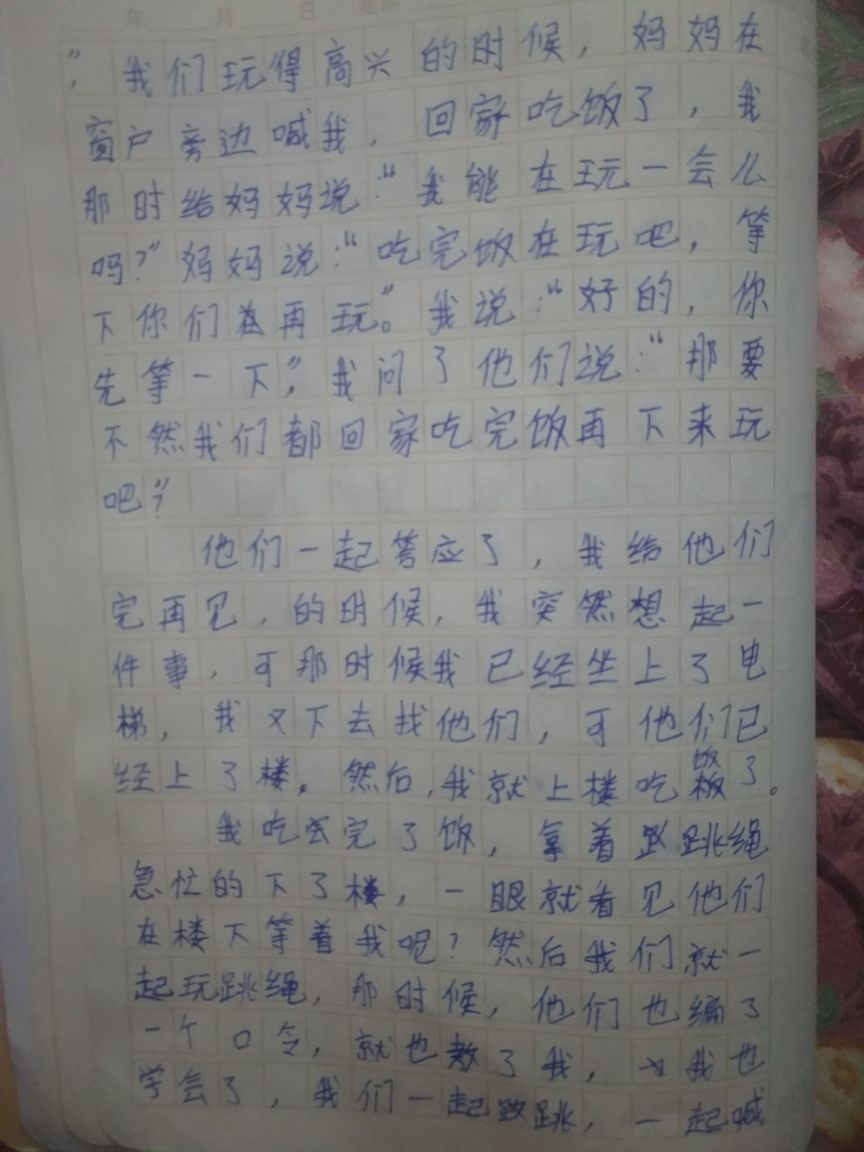 年 月 日 星期
”，我们玩得高兴的时候，妈妈在
窗户旁边喊我，回家吃饭了，我
那时给妈妈说：“我能在玩一会么
吗？”妈妈说：“吃完饭在玩吧，等
下你们在再玩。”我说：“好的，你
先等一下”，我问了他们说：“那要
不然我们都回家吃完饭再下来玩
吧？”
他们一起答应了，我给他们
完再见，的时候，我突然想起一
件事，可那时候我已经坐上了电
梯，我又下去找他们，可他们已
经上了楼。然后，我就上楼吃饭了。
我吃完了饭，拿着跳绳
急忙的下了楼，一眼就看见他们
在楼下等着我呢？然后我们就一
起玩跳绳，那时候，他们也编了
一个口令，就也教了我，我也
学会了，我们一起跳，一起喊